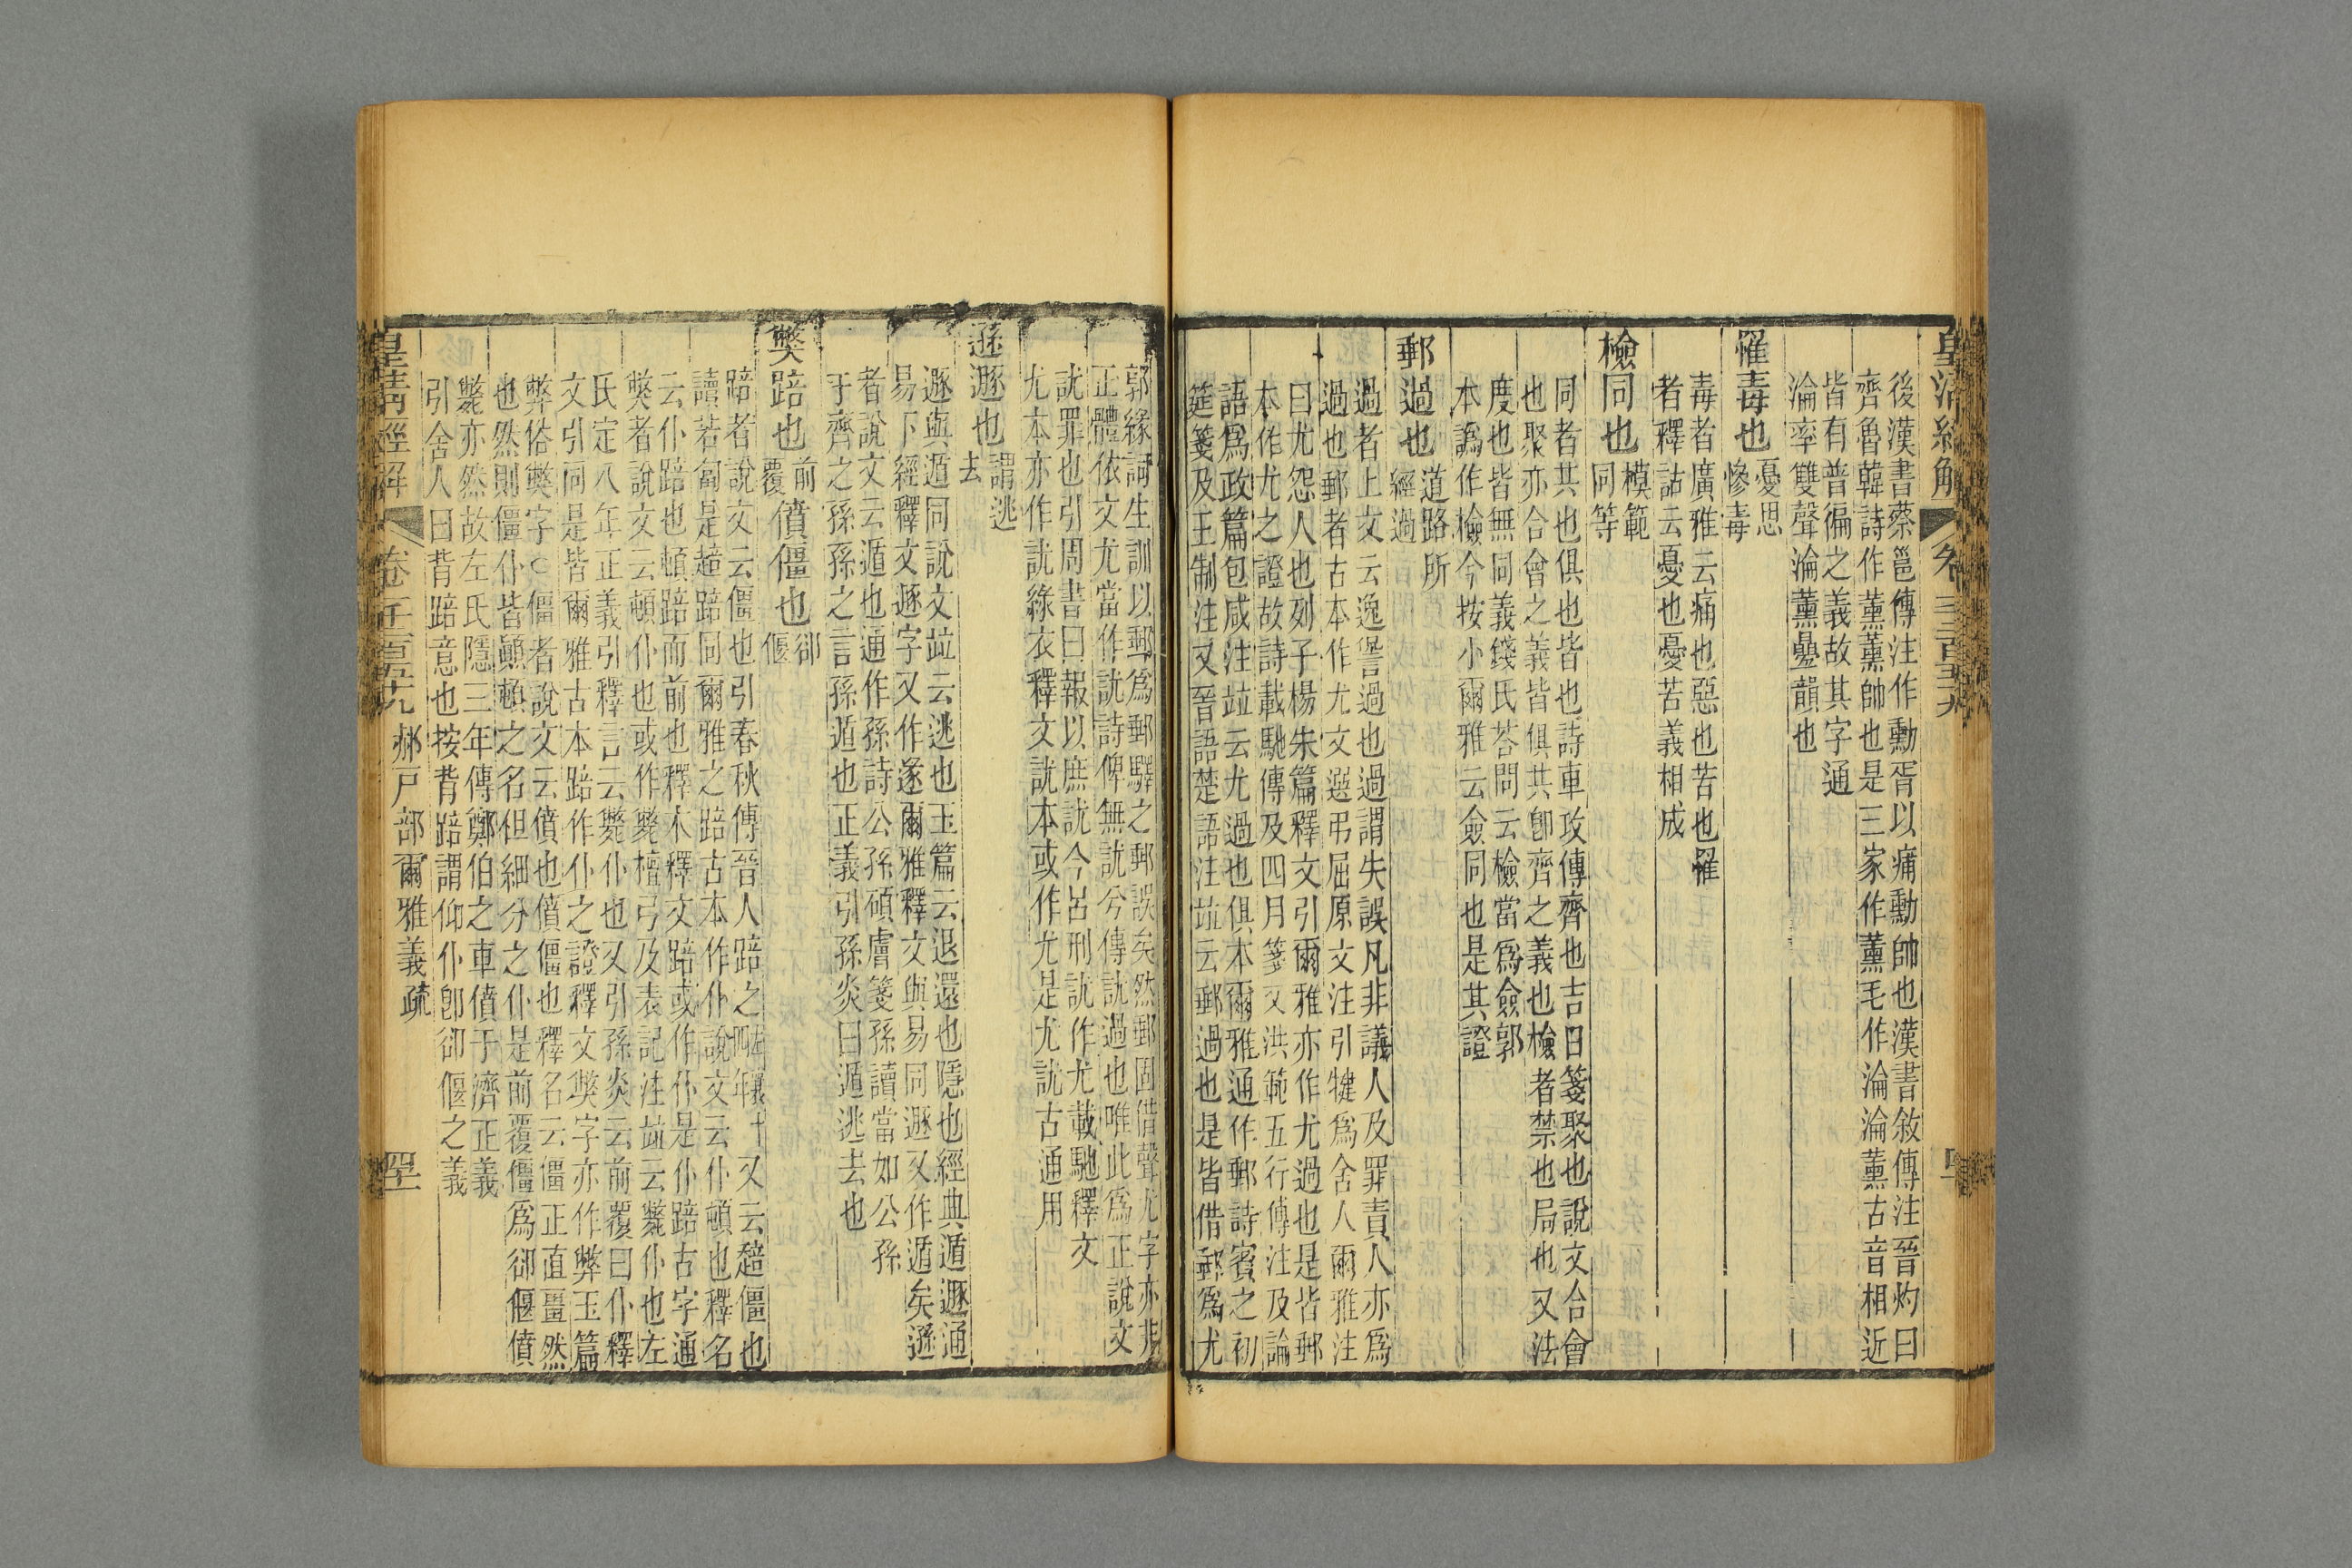 後漢書蔡邕傳注作勳胥以痡勳帥也漢書敘傳注晉灼曰
齊魯韓詩作薰薰帥也是三家作薰毛作淪淪薰古音相近
皆有普徧之義故其字通
淪率雙聲淪薰曡韻也
罹毒也憂思
慘毒
毒者廣雅云痛也惡也苦也罹
者釋詁云憂也憂苦義相成
檢同也模範
同等
同者其也俱也皆也詩車攻傳齊也吉日箋聚也說文合會
也聚亦合會之義皆俱共卽齊之義也檢者禁也局也又法
度也皆無同義錢氏荅問云檢當爲僉郭
本譌作檢今按小爾雅云僉同也是其證
郵過也道路所
經過
過者上文云逸諐過也過謂失誤凡非議人及罪責人亦爲
過也郵者古本作尤文選弔屈原文注引犍爲舍人爾雅注
曰尤怨人也列子楊朱篇釋文引爾雅亦作尤過也是皆郵
本作尤之證故詩載馳傳及四月箋又洪範五行傳注及論
語爲政篇包咸注竝云尤過也俱本爾雅通作郵詩賓之初
筵箋及王制注又晉語楚語注竝云郵過也是皆借郵爲尤
郭緣詞生訓以郵爲郵驛之郵誤矣然郵固借聲尤字亦非
正體依文尤當作訧詩俾無訧兮傳訧過也唯此爲正說文
訧罪也引周書曰報以庶訧今呂刑訧作尤載馳釋文
尤本亦作訧緣衣釋文訧本或作尤是尤訧古通用
遜遯也謂逃
去
遯與遁同說文竝云逃也玉篇云退還也隱也經典遁遯通
易下經釋文遯字又作遂爾雅釋文與易同遯又作遁矣遜
者說文云遁也通作孫詩公孫碩膚箋孫讀當如公孫
于齊之孫孫之言孫遁也正義引孫炎曰遁逃去也
獘踣也前
覆僨僵也卻
偃
踣者說文云僵也引春秋傳晉人踣之襄十
四年又云䞳僵也
讀若匐是䞳踣同爾雅之踣古本作仆說文云仆頓也釋名
云仆踣也頓踣而前也釋木釋文踣或作仆是仆踣古字通
獘者說文云頓仆也或作斃檀弓及表記注竝云斃仆也左
氏定八年正義引釋言云斃仆也又引孫炎云前覆曰仆釋
文引同是皆爾雅古本踣作仆之證釋文獘字亦作弊玉篇
弊俗獘字○僵者說文云僨也僨僵也釋名云僵正直畺然
也然則僵仆皆顚頓之名但細分之仆是前覆僵爲卻偃僨
斃亦然故左氏隱三年傳鄭伯之車僨于濟正義
引舍人曰背踣意也按背踣謂仰仆卽卻偃之義
皇清經解 卷千二百五十九 郝戸部爾雅義疏